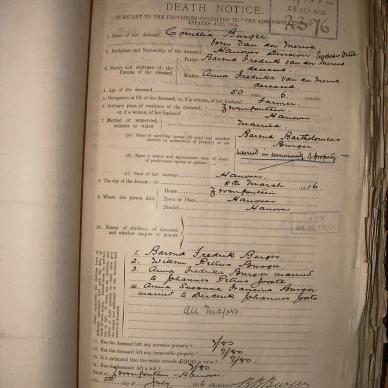 DEATH NOTICE.
PURSUANT TO THE PROVISIONS CONTAINED IN THE ADMINISTRATION
ESTATES ACT, 1913.
1. Name of the deceased Cornelia Burger
born van der Merwe
2. Birthplace and Nationality of the deceased Hanover Division
3. Names and addresses of the Parents of the deceased
Father Barend Fredrik van der Merwe
deceased
Mother Anna Fredrika van der Merwe
deceased
4. Age of the deceased 50 years 6 months
5. Occupation in life of the deceased, or, if a woman, of her husband Farmer
6. Ordinary place of residence of the deceased,
or, if a woman, of her husband Hanover
7. Married or unmarried, widower or widow Married
(a) Name of surviving spouse (if any) and whether married in community of property or not
Barend Bartholomeus
Burger
married in community of property
(b) Name or names and approximate date of death of predeceased spouse or spouses
(c) Place of last marriage Hanover
8. The day of the decease 8th March 1916
9. Where the person died
House
Town or Place Hanover
District Hanover
10. Names of children of deceased and whether majors or minors
1. Barend Fredrik Burger
2. Willem Petrus Burger
3. Anna Fredrika Burger married
to Johannes Petrus
4. Anna Susanna Francina Burger
married to Diederik Johannes
All majors.
11. Has the deceased left any movable property? Yes
12. Has the deceased left any immovable property? Yes
13. Is it estimated that the estate exceeds £300 in value? Yes
14. Has the deceased left a will? Yes
Dated at Hanover
July 1916